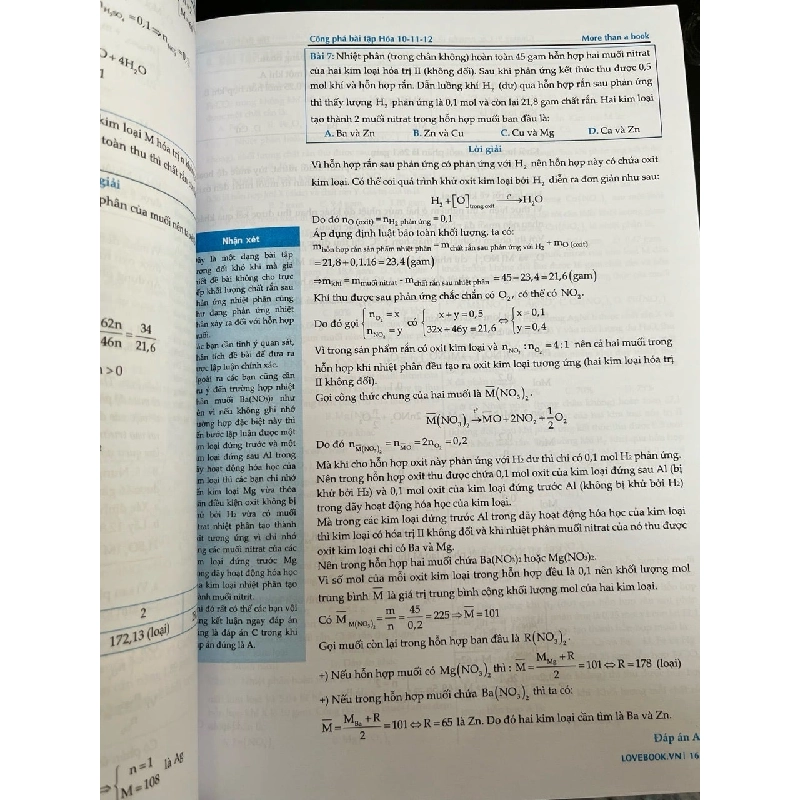 Công phá bài tập Hóa 10-11-12
More than a book
Bài 7: Nhiệt phân (trong chân không) hoàn toàn 45 gam hỗn hợp hai muối nitrat
của hai kim loại hóa trị II (không đổi). Sau khi phản ứng kết thúc thu được 0,5
mol khí và hỗn hợp rắn. Dẫn luồng khí H₂ (dư) qua hỗn hợp rắn sau phản ứng
thì thấy lượng H₂ phản ứng là 0,1 mol và còn lại 21,8 gam chất rắn. Hai kim loại
tạo thành 2 muối nitrat trong hỗn hợp muối ban đầu là:
A. Ba và Zn B. Zn và Cu C. Cu và Mg D. Ca và Zn
Lời giải
Vì hỗn hợp rắn sau phản ứng có phản ứng với H₂ nên hỗn hợp này có chứa oxit
kim loại. Có thể coi quá trình khử oxit kim loại bởi H₂ diễn ra đơn giản như sau:
H₂ + [O] trong oxit —t°→ H₂O
Do đó n O (oxit) = n H₂ phản ứng = 0,1
Áp dụng định luật bảo toàn khối lượng, ta có:
m hỗn hợp rắn sản phẩm nhiệt phân = m chất rắn sau phản ứng với H₂ + m O (oxit)
= 21,8 + 0,1.16 = 23,4 (gam)
⇒ m khí = m muối nitrat - m chất rắn sau nhiệt phân = 45 – 23,4 = 21,6 (gam)
Khí thu được sau phản ứng chắc chắn có O₂, có thể có NO₂.
Do đó gọi { n O₂ = x; n NO₂ = y có { x + y = 0,5; 32x + 46y = 21,6 ⇔ { x = 0,1; y = 0,4
Vì trong sản phẩm rắn có oxit kim loại và n NO₂ : n O₂ = 4 : 1 nên cả hai muối trong
hỗn hợp khi nhiệt phân đều tạo ra oxit kim loại tương ứng (hai kim loại hóa trị
II không đổi).
Gọi công thức chung của hai muối là M̄(NO₃)₂.
M̄(NO₃)₂ —t°→ M̄O + 2NO₂ + 1/2 O₂
Do đó n M̄(NO₃)₂ = n M̄O = 2n O₂ = 0,2
Mà khi cho hỗn hợp oxit này phản ứng với H₂ dư thì chỉ có 0,1 mol H₂ phản ứng.
Nên trong hỗn hợp oxit thu được chứa 0,1 mol oxit của kim loại đứng sau Al (bị
khử bởi H₂) và 0,1 mol oxit của kim loại đứng trước Al (không bị khử bởi H₂)
trong dãy hoạt động hóa học của kim loại.
Mà trong các kim loại đứng trước Al trong dãy hoạt động hóa học của kim loại
thì kim loại có hóa trị II không đổi và khi nhiệt phân muối nitrat của nó thu được
oxit kim loại chỉ có Ba và Mg.
Nên trong hỗn hợp hai muối chứa Ba(NO₃)₂ hoặc Mg(NO₃)₂.
Vì số mol của mỗi oxit kim loại trong hỗn hợp đều là 0,1 nên khối lượng mol
trung bình M̄ là giá trị trung bình cộng khối lượng mol của hai kim loại.
Có M̄ M(NO₃)₂ = m/n = 45/0,2 = 225 ⇒ M̄ = 101
Gọi muối còn lại trong hỗn hợp ban đầu là R(NO₃)₂.
+) Nếu hỗn hợp muối có Mg(NO₃)₂ thì : M̄ = (M Mg + R)/2 = 101 ⇔ R = 178 (loại)
+) Nếu trong hỗn hợp muối chứa Ba(NO₃)₂ thì ta có:
M̄ = (M Ba + R)/2 = 101 ⇔ R = 65 là Zn. Do đó hai kim loại cần tìm là Ba và Zn.
Đáp án A
LOVEBOOK.VN | 16
Nhận xét
là một dạng bài tập
đối khó khi mà giá
đề bài không cho trực
khối lượng chất rắn sau
ứng nhiệt phân cũng
dạng phản ứng nhiệt
xảy ra đối với hỗn hợp
bạn cần tinh ý quan sát,
tích đề bài để đưa ra
lập luận chính xác.
ra các bạn cũng cần
ý đến trường hợp nhiệt
muối Ba(NO₃)₂ như
vì nếu không ghi nhớ
hợp đặc biệt này thì
bước lập luận được một
loại đứng trước và một
loại đứng sau Al trong
hoạt động hóa học của
loại thì các bạn chỉ nhớ
kim loại Mg vừa thỏa
điều kiện oxit không bị
bởi H₂ vừa có muối
nhiệt phân tạo thành
tương ứng vì chỉ nhớ
các muối nitrat của các
loại đứng trước Mg
dãy hoạt động hóa học
kim loại nhiệt phân tạo
muối nitrit.
đó rất có thể các bạn vội
kết luận ngay đáp án
là đáp án C trong khi
án đúng là A.
= 0,1 ⇒
+ 4H₂O
kim loại M hóa trị n
toàn thu thì chất rắn
giải
phân của muối nên
62n
46n = 34/21,6
> 0
2
172,13 (loại)
⇒ { n = 1; M = 108 là Ag